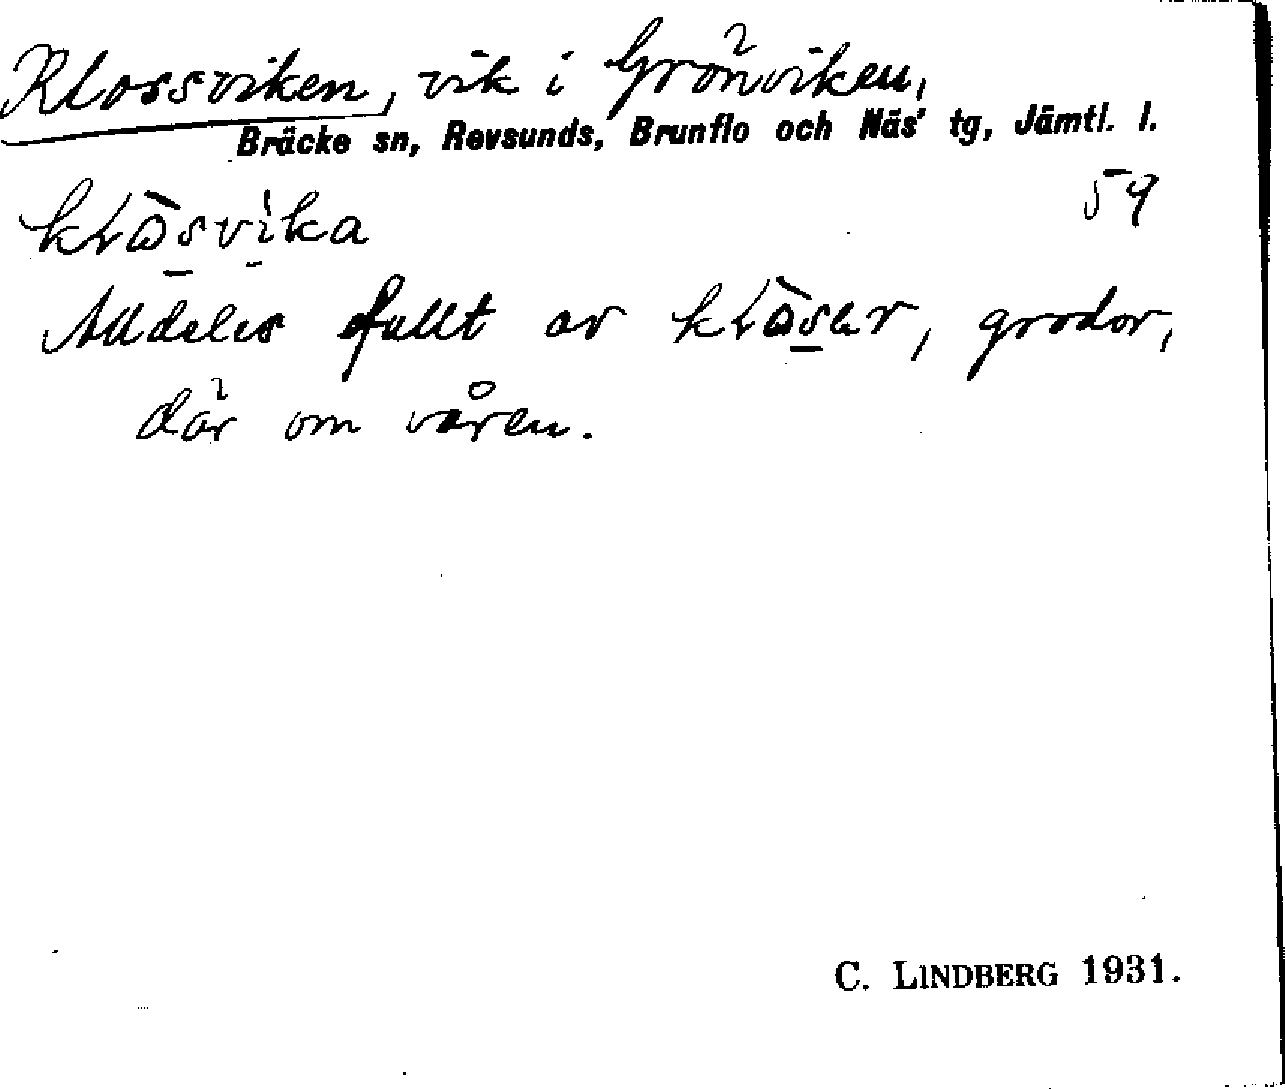 Klossviken, vik i Grönviken,
Bräcke sn, Revsunds, Brunflo och Näs' tg, Jämtl. l.
59
Alldeles fullt av grodor,
där om våren.
C. LINDBERG 1931.